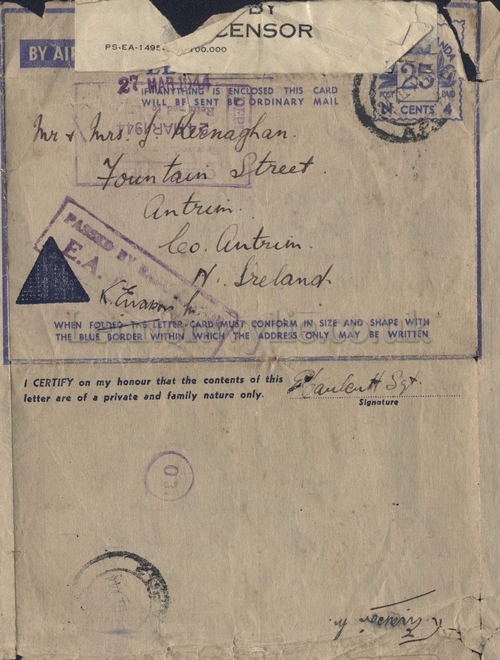 BY
CENSOR
BY AI
27 MAR 1944
IF ANYTHING IS ENCLOSED THIS CARD
WILL BE SENT BY ORDINARY MAIL
25
POST PAID
N. CENTS 4
Mr & Mrs. J. Kernaghan.
Fountain Street.
Antrim.
Co. Antrim.
N. Ireland
PASSED BY
E.A.
WHEN FOLDED THE LETTER CARD MUST CONFORM IN SIZE AND SHAPE WITH
THE BLUE BORDER WITHIN WHICH THE ADDRESS ONLY MAY BE WRITTEN
I CERTIFY on my honour that the contents of this
letter are of a private and family nature only.
Sgt.
Signature